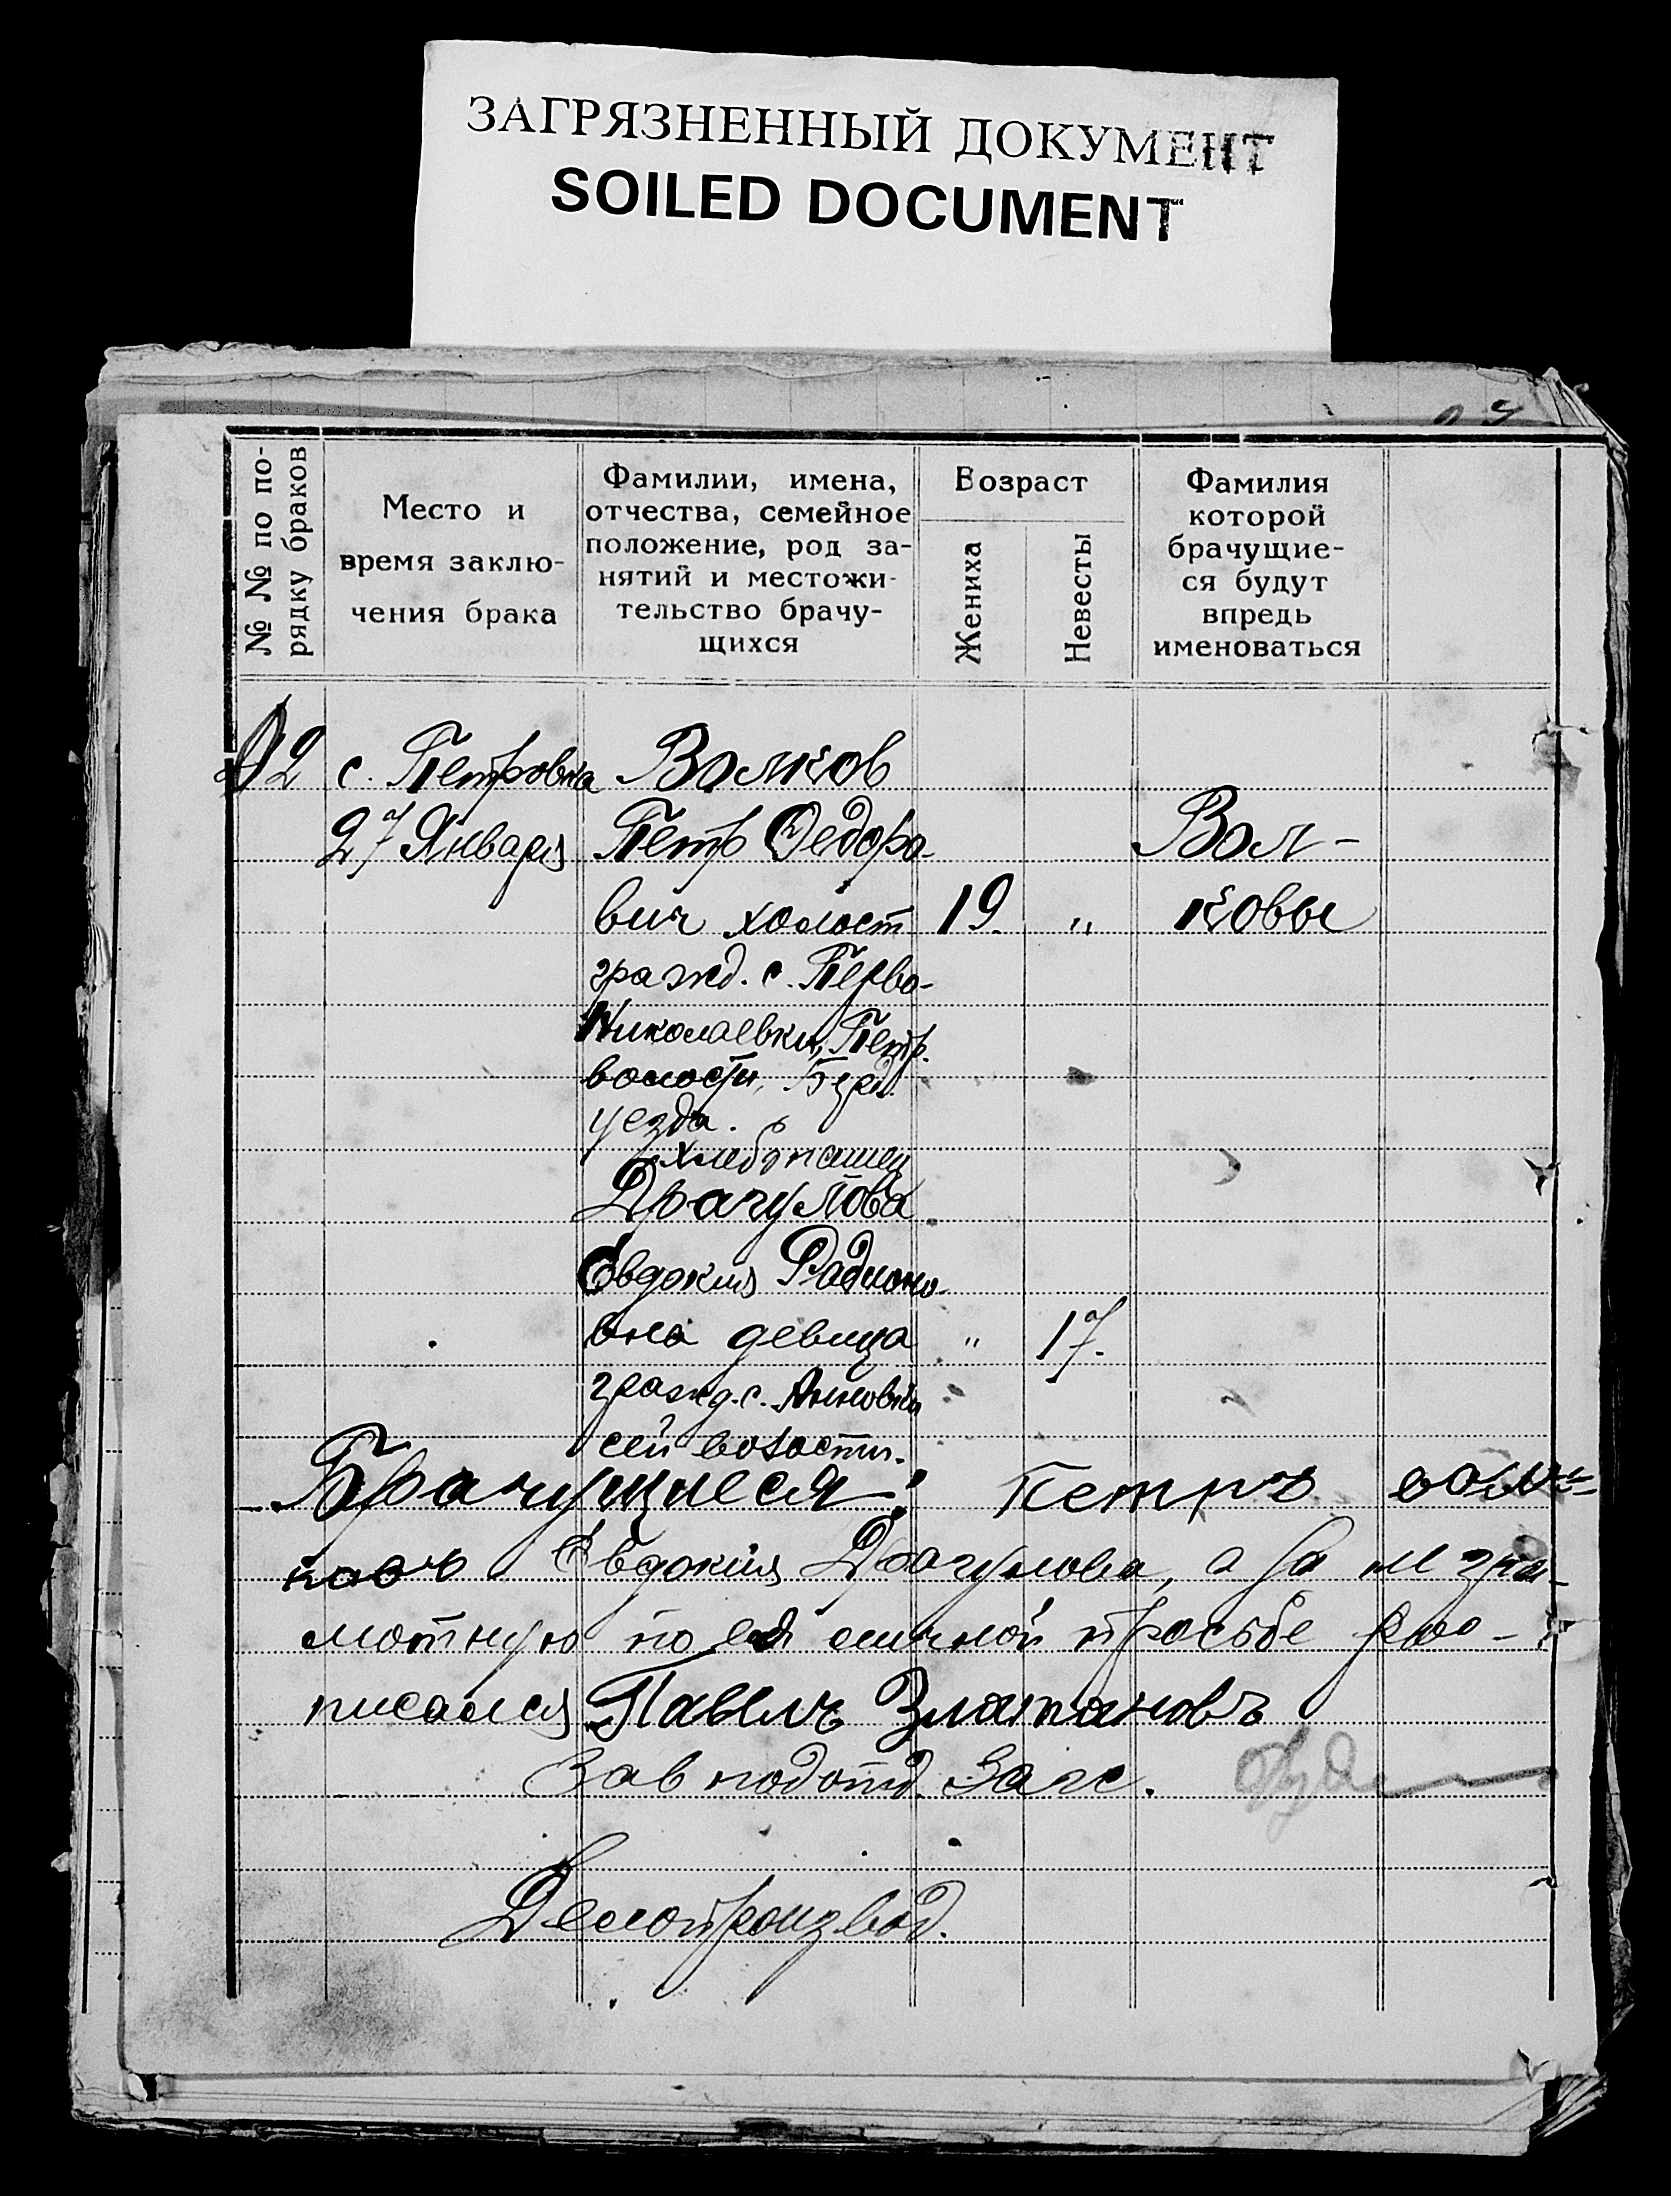 ЗАГРЯЗНЕННЫЙ ДОКУМЕНТ
SOILED DOCUMENT
№ № по по-
рядку браков
Место и
время заклю-
чения брака
Фамилии, имена,
отчества, семейное
положение, род за-
нятий и местожи-
тельство брачу-
щихся
Возраст
Жениха
Невесты
Фамилия
которой
брачущие-
ся будут
впредь
именоваться
с. Петровка Волков
27 Января Петр Федоро- Вол-
вич холост 19. " ковы
гражд. с. Перво-
Николаевки, Петр.
волости, Берд.
уезда.
хлебопашец
Драгулова
Евдокия Радионо-
вна девица " 17.
гражд. с. Анновки
сей волости.
Брачущиеся: Петръ вол=
ковъ Евдокия Драгулова, а за не гра-
мотную по ея личной просьбе рас-
писался Павелъ Златановъ
Зав подотд. Загс.
Делопроизвод.